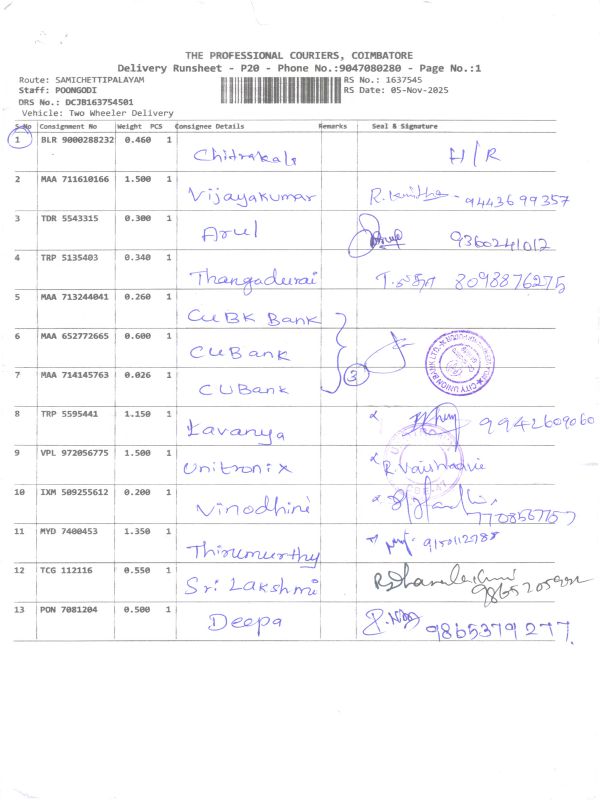 THE PROFESSIONAL COURIERS, COIMBATORE
Delivery Runsheet - P20 - Phone No.:9047080280 - Page No.:1
Route: SAMICHETTIPALAYAM RS No.: 1637545
Staff: POONGODI RS Date: 05-Nov-2025
DRS No.: DCJB163754501
Vehicle: Two Wheeler Delivery
S.No Consignment No Weight PCS Consignee Details Remarks Seal & Signature
1 BLR 9000288232 0.460 1
Chitrakala H/R
2 MAA 711610166 1.500 1
Vijayakumar R. Kavitha - 9443699357
3 TDR 5543315 0.300 1
Arul 9360241012
4 TRP 5135403 0.340 1
Thangadurai 8098876275
5 MAA 713244041 0.260 1
CUBK Bank
6 MAA 652772665 0.600 1
CUBank CITY UNION BANK LTD.
7 MAA 714145763 0.026 1
CUBank 3
8 TRP 5595441 1.150 1
Lavanya 9942609060
9 VPL 972056775 1.500 1
Unitronix
10 IXM 509255612 0.200 1
Vinodhini
11 MYD 7400453 1.350 1
Thirumurthy
12 TCG 112116 0.550 1
Sri Lakshmi
13 PON 7081204 0.500 1
Deepa 9865379277.